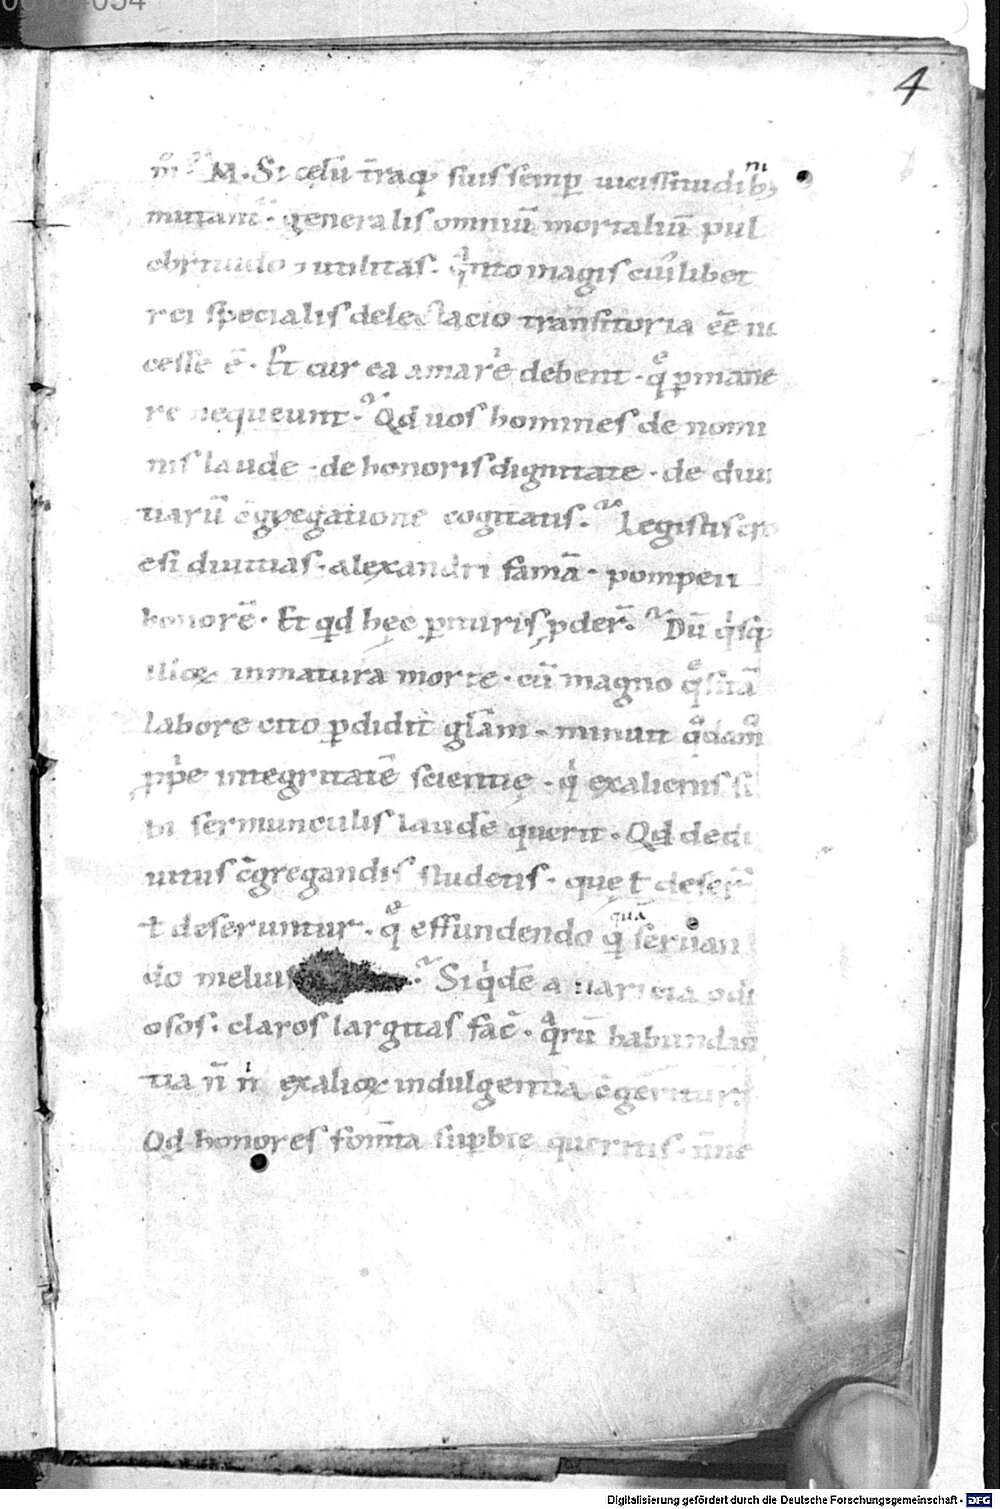 4
M. S. celũ t̃raq; suis semp̱ uicissitudib;
mutant̃. generalis omniũ mortaliũ pul
chritudo utilitas. q̃nto magis cui᷒libet
rei specialis delectacio transitoria eẽ ne
cesse ẽ. Et cur ea amare debent. q̃ p̱mane
re nequeunt. Qd uos homines de nomi
nis laude. de honoris dignitate. de diui
tiarũ c̃gregatione cogitatis. Legistis cro
esi diuitias. alexandri famã. pompeii
honorẽ. Et qd hęc p̱ituris p̱der̃. Dũ q̇sq;
inmatura morte. cũ magno q̃sitã
labore cito p̱didit gl̃am. minuit q̃dam̃
p̱p̱e integritatẽ scientię. q̇ ex alienis si
bi sermunculis laudẽ querit. Qd de di
uitiis c̃gregandis studetis. que ł deser̃
ł deseruntur. q̃ effundendo q̃ quã seruan
do melius Siq̇dẽ auaricia odi
osos. claros largitas fac̃. q̃rũ habundan
tia ñ ñ ex alioꝝ indulgentia c̃geritur.
Qd honores fomẽta sup̱bie queritis. ñne
Digitalisierung gefördert durch die Deutsche Forschungsgemeinschaft - DFG